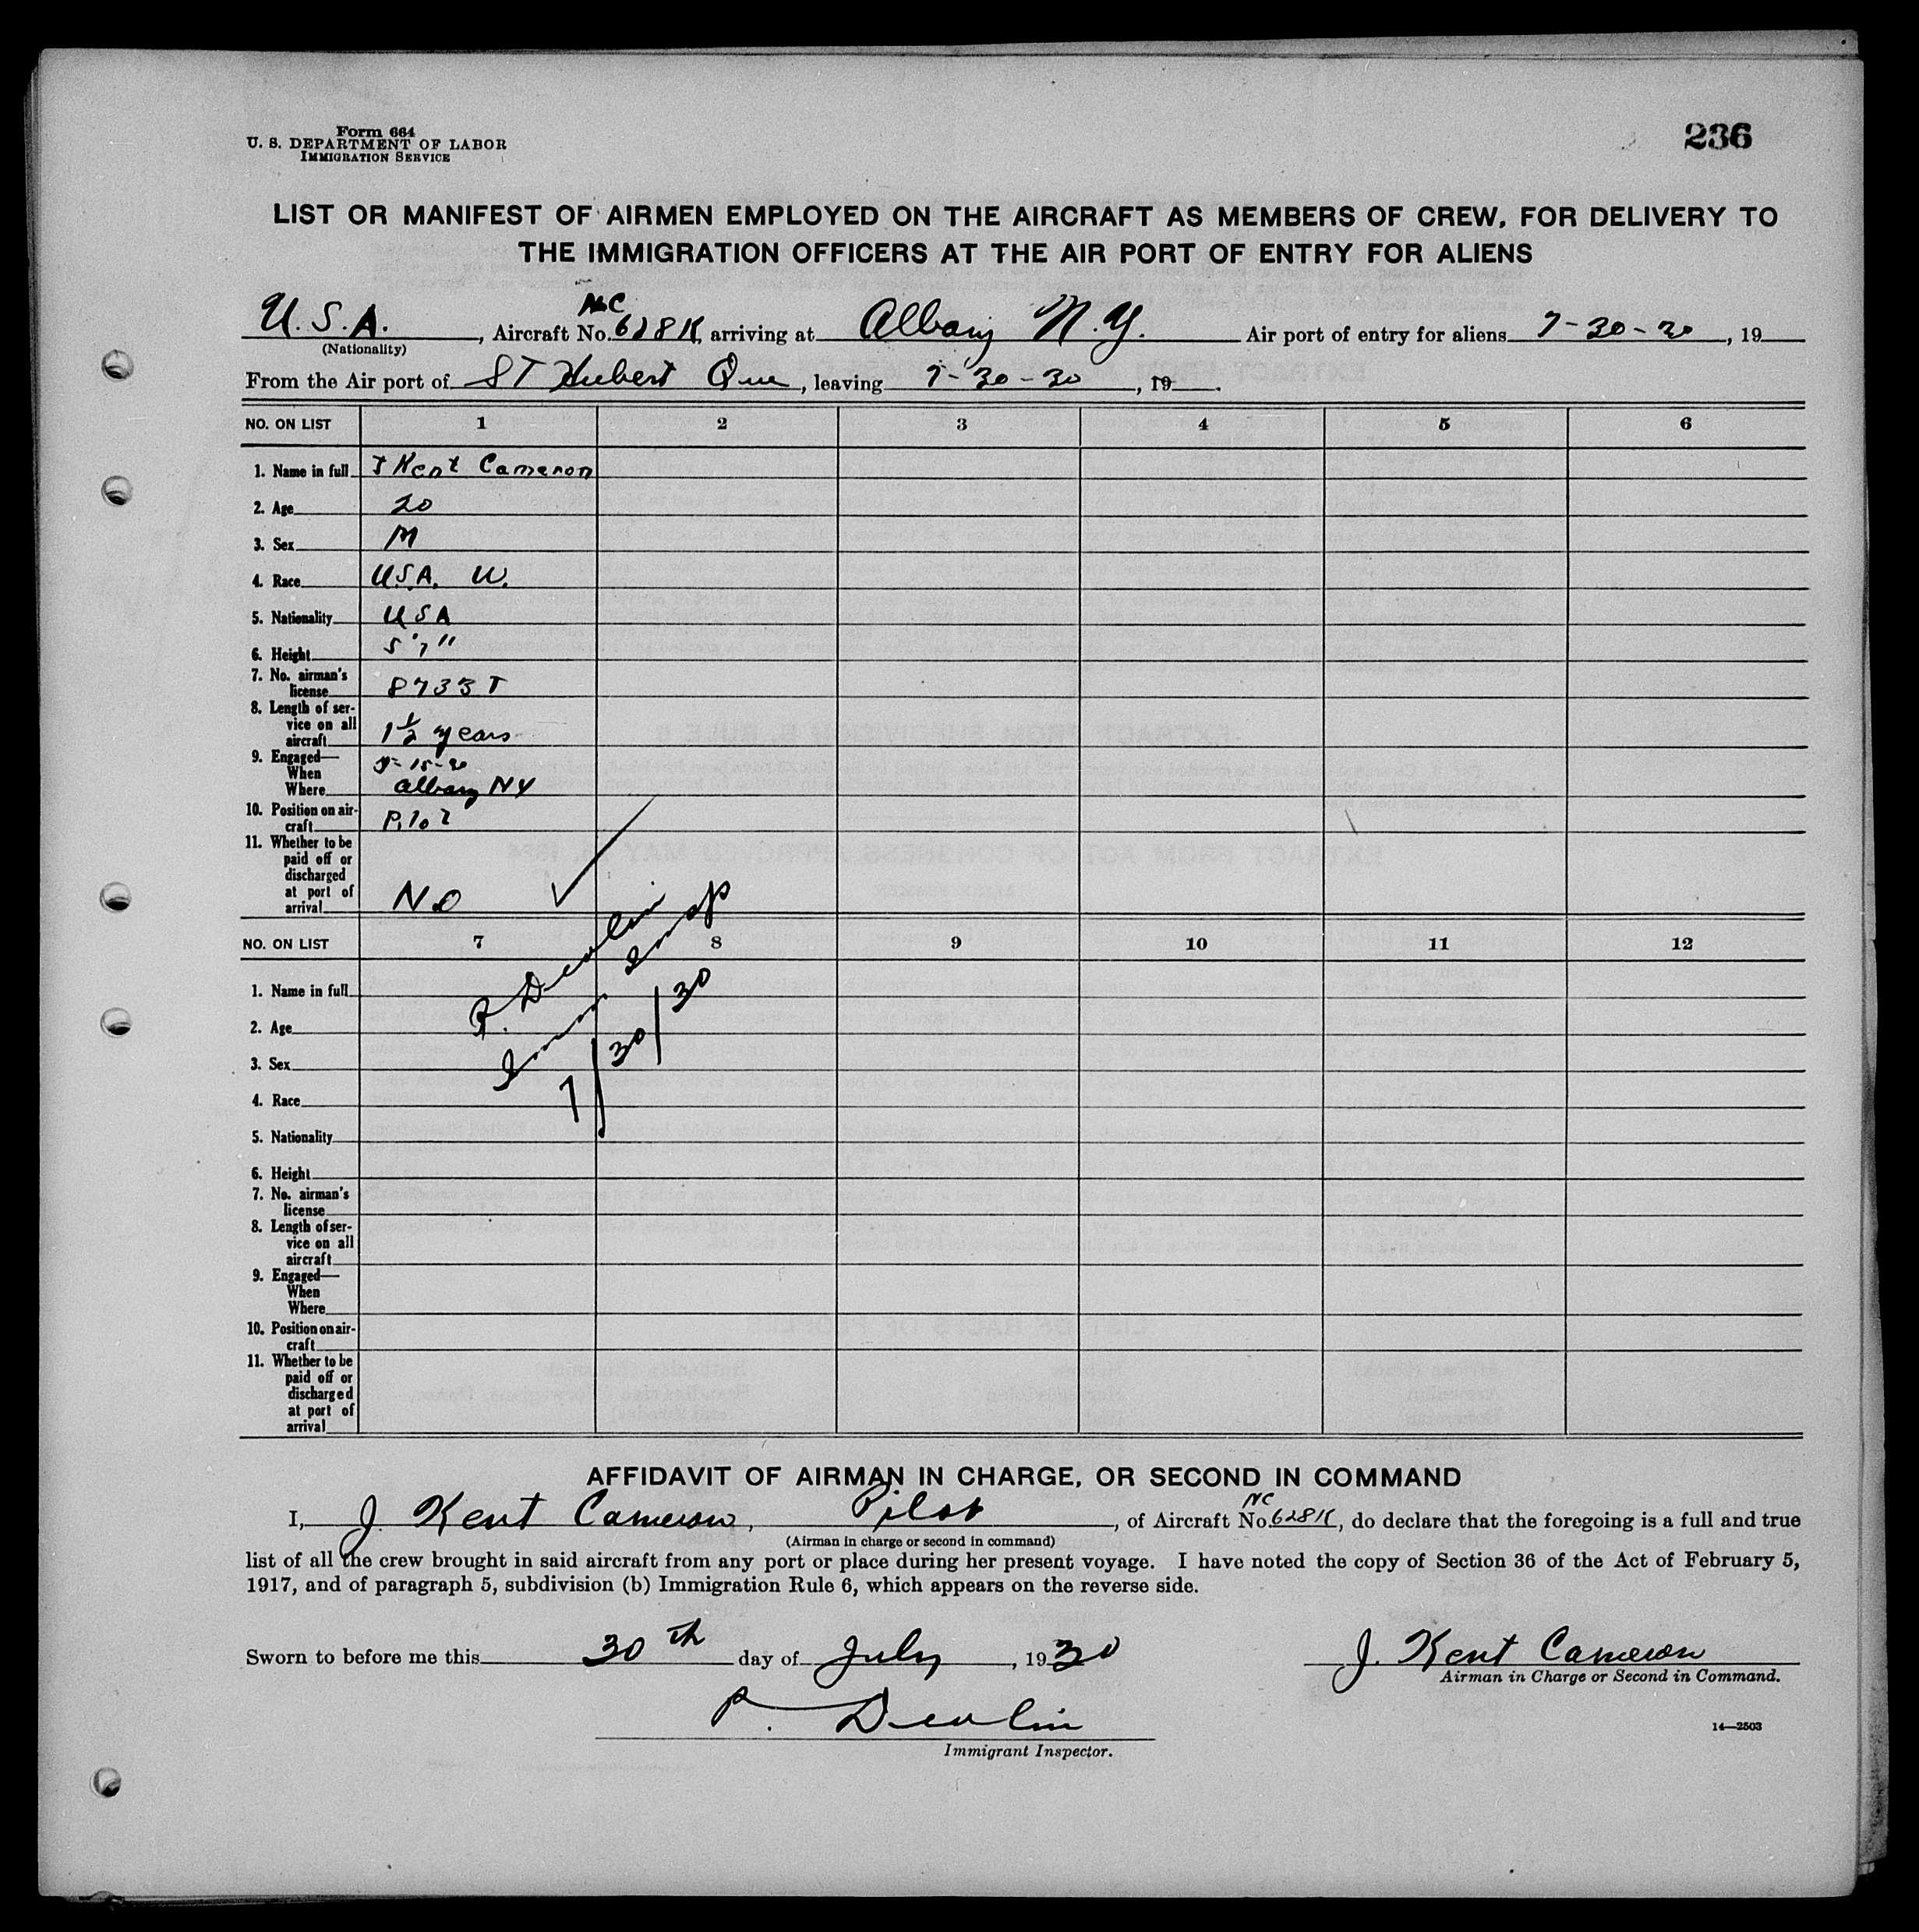 Form 664
U. S. DEPARTMENT OF LABOR
IMMIGRATION SERVICE
236
LIST OR MANIFEST OF AIRMEN EMPLOYED ON THE AIRCRAFT AS MEMBERS OF CREW, FOR DELIVERY TO
THE IMMIGRATION OFFICERS AT THE AIR PORT OF ENTRY FOR ALIENS
U.S.A., Aircraft No. NC 628K, arriving at Albany N.Y. Air port of entry for aliens 7-30-30, 19
(Nationality)
From the Air port of ST Hubert Que, leaving 7-30-30, 19.
NO. ON LIST 1 2 3 4 5 6
1. Name in full J Kent Cameron
2. Age 20
3. Sex M
4. Race USA. W.
5. Nationality USA
6. Height 5'7"
7. No. airman's
license 8733 T
8. Length of ser-
vice on all
aircraft 1½ years
9. Engaged—
When
Where Albany NY
10. Position on air-
craft Pilot
11. Whether to be
paid off or
discharged
at port of
arrival No
NO. ON LIST 7 8 9 10 11 12
P. Devlin
Immig Insp
7/30/30
1. Name in full
2. Age
3. Sex
4. Race
5. Nationality
6. Height
7. No. airman's
license
8. Length of ser-
vice on all
aircraft
9. Engaged—
When
Where
10. Position on air-
craft
11. Whether to be
paid off or
discharged
at port of
arrival
AFFIDAVIT OF AIRMAN IN CHARGE, OR SECOND IN COMMAND
I, J. Kent Cameron, Pilot, of Aircraft No. NC 628K, do declare that the foregoing is a full and true
(Airman in charge or second in command)
list of all the crew brought in said aircraft from any port or place during her present voyage. I have noted the copy of Section 36 of the Act of February 5,
1917, and of paragraph 5, subdivision (b) Immigration Rule 6, which appears on the reverse side.
Sworn to before me this 30th day of July, 1930
J. Kent Cameron
Airman in Charge or Second in Command.
P. Devlin
Immigrant Inspector.
14—2503